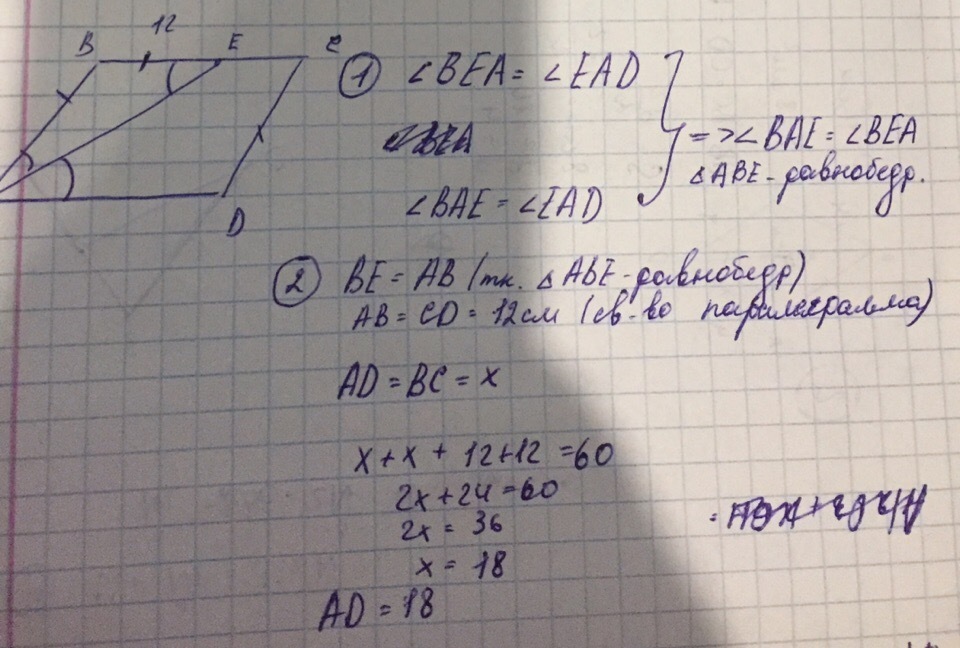 12
B E C
D
① ∠BEA = ∠EAD
∠BAE = ∠EAD
=> ∠BAE = ∠BEA
△ABE - равнобедр.
② BE = AB (тк. △ABE - равнобедр)
AB = CD = 12 см (св-во паралеграмма)
AD = BC = x
x + x + 12 + 12 = 60
2x + 24 = 60
2x = 36
x = 18
AD = 18